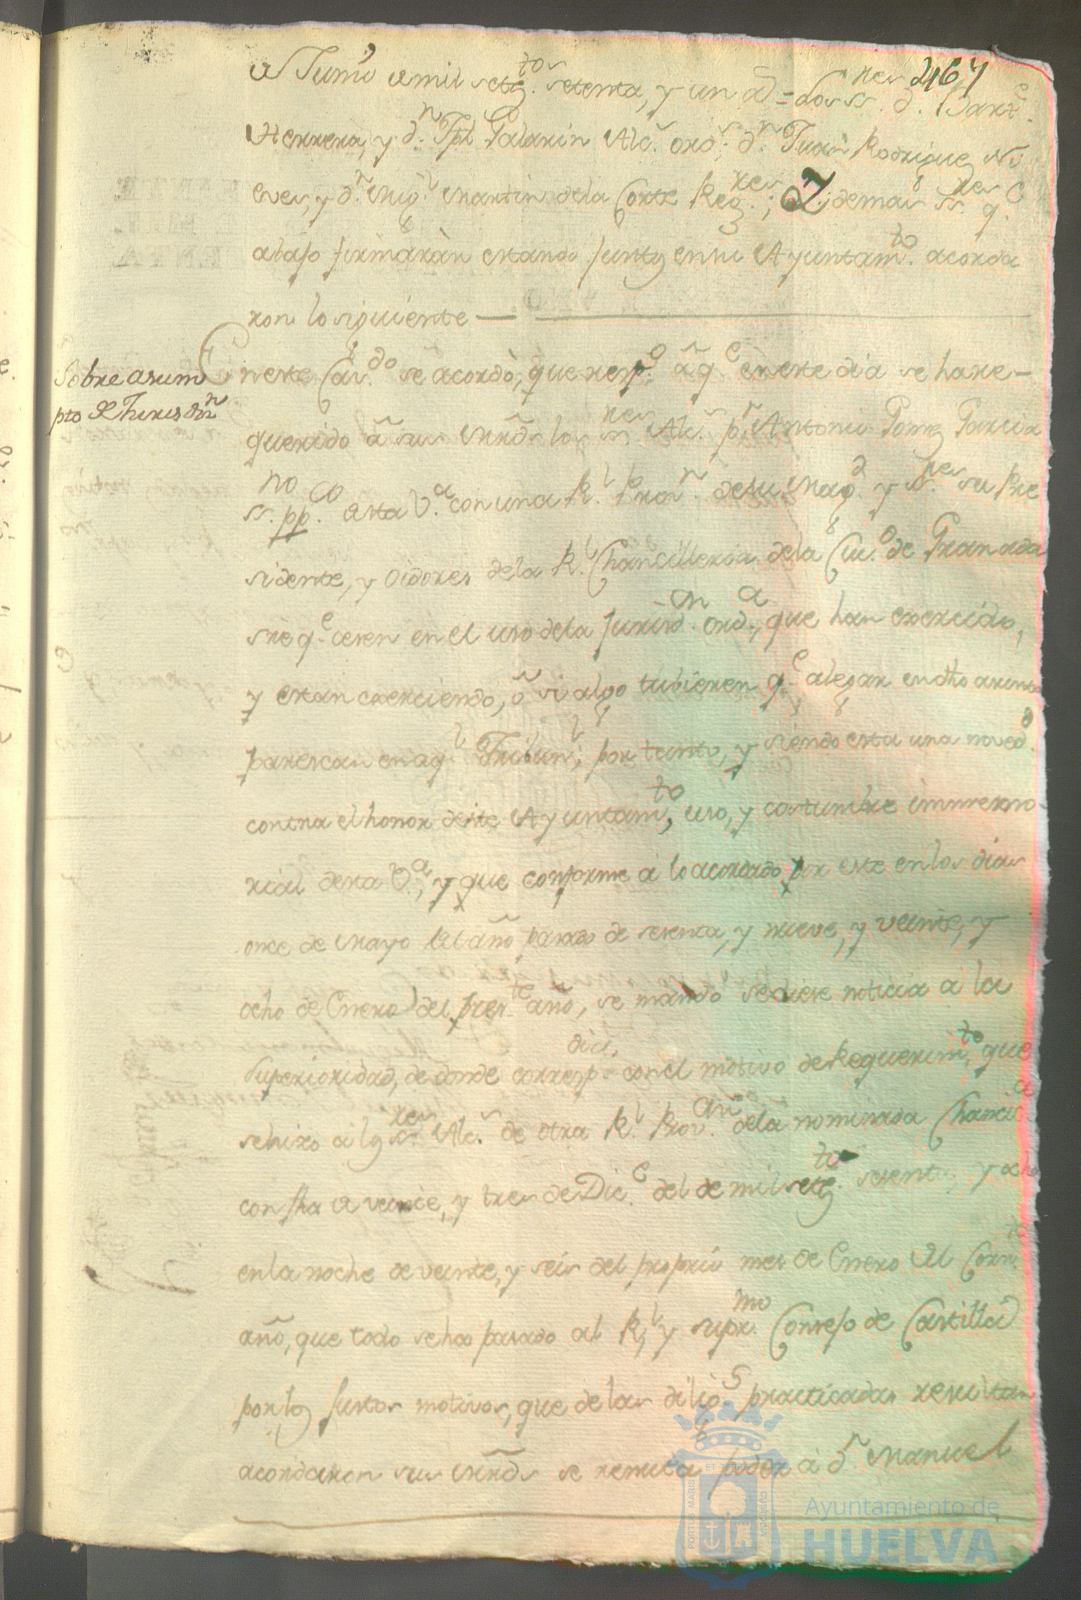 467
de Junio de mil sete.tos setenta, y un a.s = Los ss.res D. Bart.e
Herrera, y d.n Alc.s ord.s d.n Juan Rodriguez Ni
eves, y d.n Mig.l Martin de la Corte Reg.res; y demas ss.res q.e
abajo firmaràn estando juntos en su Ayuntam.to acorda
ron lo siguiente
Sobre asum
pto de Jurisd.n
En este Cav.do se acordò, que resp.o à q.e en este dia se ha re-
querido à sus mrds los ss.res Alc.s p.r Antonio Garcia
ss.no pp.co de esta V.a con una R.l Prov.n de su Mag.d y ss.res su Pre
sidente, y oidores de la R.l Chancilleria de la Ciu.d de Granada
sre q.e cesen en el uso de la jurisd.on ord.a, que han exercido,
y estan exerciendo, ò si algo tubieren q.e alegar en dho asunto
parescan en aq.l Tribun.l; por tanto, y siendo esta una noved.d
contra el honor de este Ayuntam.to, uso, y costumbre inmemo-
rial de esta V.a, y que conforme à lo acordado por este en los dias
once de Mayo del año pasado de sesenta, y nueve, y veinte, y
ocho de Enero del pres.te año, se mandò se diese noticia à la
Superioridad, de donde corresp. con el motivo de Requerim.to, que
dia,
se hizo à los ss.res Alc.s de otra R.l Prov.on de la nominada Chanc.a
con fha de veinte, y tres de Dic.e del de mil sete.tos setenta, y
en la noche de veinte, y seis del proprio mes de Enero del Corr.te
año, que todo se ha pasado al R.l y supr.mo Consejo de Castilla
por los justos motivos, que de las dilig.s practicadas resultan
acordaron sus mrds se remita poder à d.n Manuel
PORTUS MARIS ET TERRAE CUSTODIA
Ayuntamiento de
HUELVA